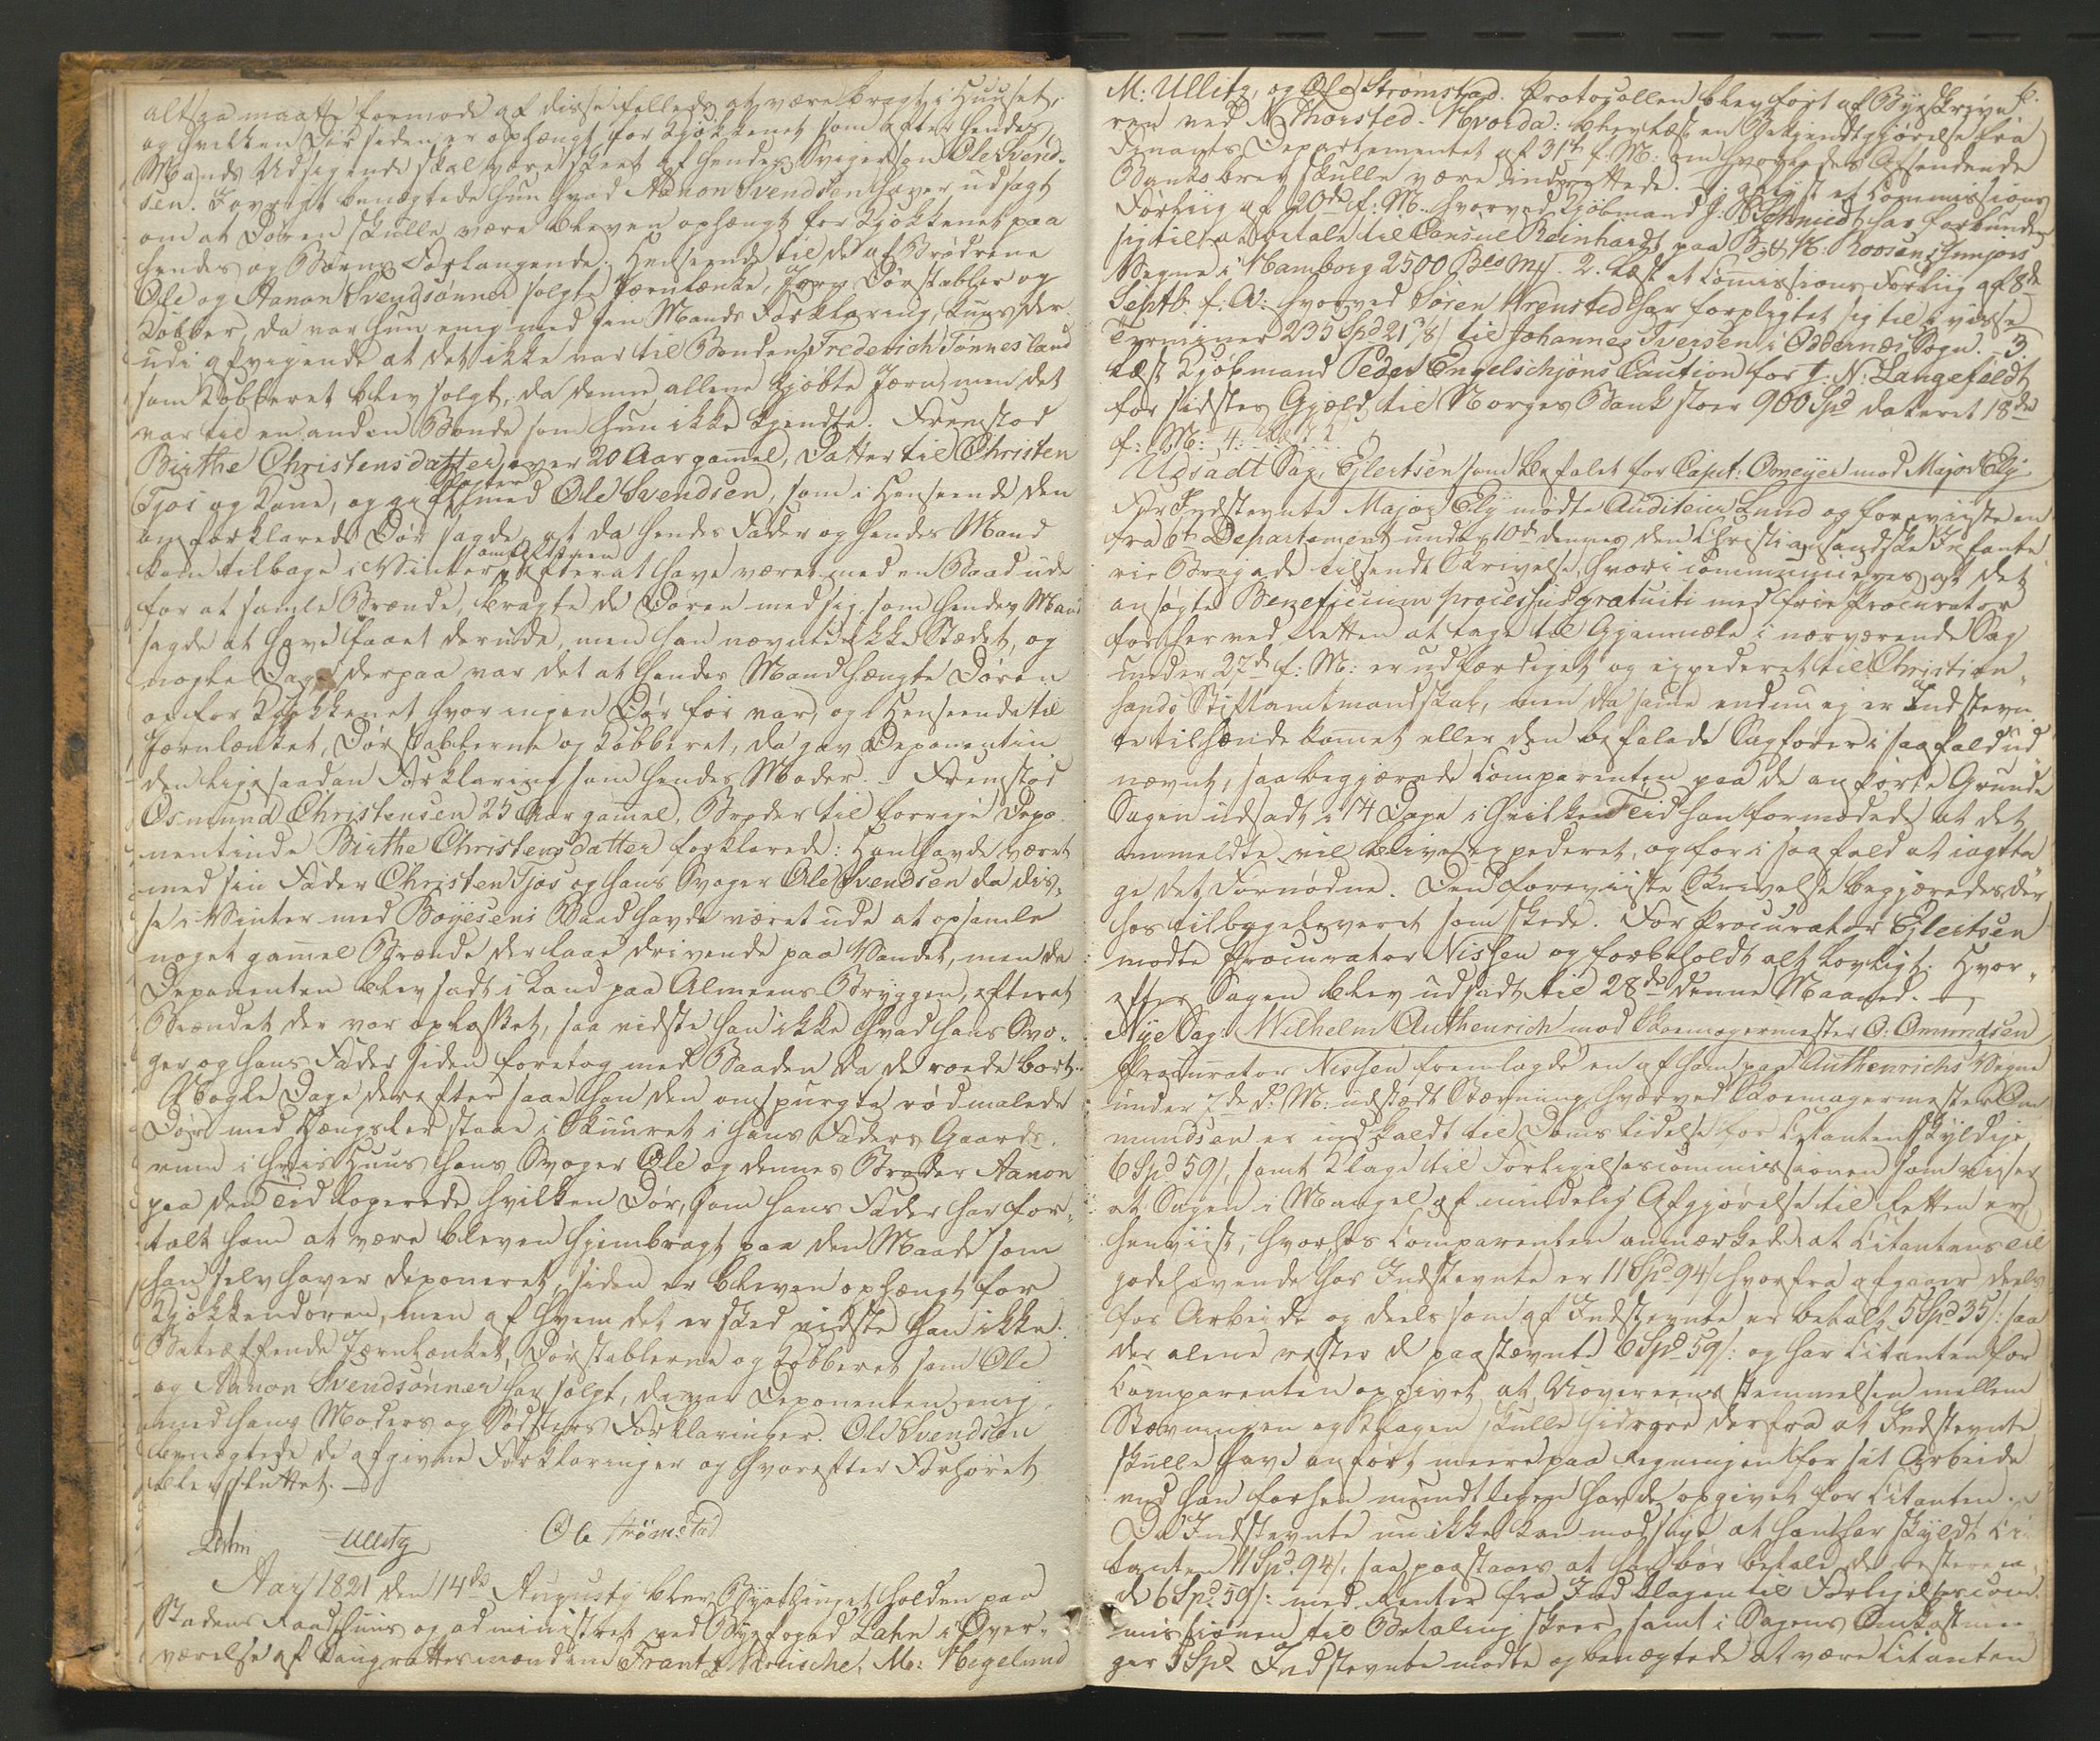 altsaa maatte formode af disse ifelleds at være bragt i Huuset,
og hvilken Dør siden er ophængt for Kjøkkenet som efter hendes
Mands Udsigende skal være skeet af hendes Svigersøn Ole Svend-
sen. Iøvrigt benægtede hun hvad Aanon Svendsen haver udsagt
om at Døren skulde være bleven ophængt for Kjøkkenet paa
hendes og Børns Forlangende. Henseende til de af Brødrene
Ole og Aanon Svendsønner solgte Jernlænke, Jern Dørstabler og
Kobber, da var hun enig med sin Mands Forklaring, kuns der-
udi afvigende at det ikke var til Bonden Frederich Tønnesland
som Kobberet blev solgt, da denne allene kjøbte Jern, men det
var til en anden Bonde som hun ikke kjendte. Fremstod
Birthe Christensdatter, over 20 Aar gammel, Datter til Christen
Tjos og Kone, og gift med Ole Svendsen, som i Henseende den
omforklarede Dør sagde, at da hendes Fader og hendes Mand
kom tilbage i Vinter om Aftenen efterat have været med en Baad ude
for at samle Brænde, bragte de Døren med sig, som hendes Mand
sagde at have faaet derude, men han nævnte ikke Stædet, og
nogle Dage derpaa var det at hendes Mand hængte Døren
op for Kjøkkenet hvor ingen Dør før var, og i Henseende til
Jernlænket, Dørstablerne og Kobberet, da gav Deponentin-
den ligesaadan Forklaring som hendes Moder. Fremstod
Osmund Christensen 25 Aar gamel, Broder til forrige Depo-
nentinde Birthe Christensdatter forklarede: Han havde været
med sin Fader Christen Tjos og hans Svoger Ole Svendsen da dis-
se i Vinter med Boyesens Baad havde været ude at opsamle
noget gamel Brænde der laae drivende paa Vandet, men da
Deponenten blev sadt i Land paa Almeens Bryggen, efterat
Brændet der var oplosset, saa vidste han ikke hvad hans Svo-
ger og hans Fader siden foretog med Baaden da de roede bort.
Nogle Dage derefter saae han den omspurgte rødmalede
Dør med Hængsler staae i Skuuret i hans Faders Gaards-
rum i hvis Huus hans Svoger Ole og dennes Broder Aanon
paa den Tid logerede hvilken Dør, som hans Fader har for-
talt ham at være bleven hjembragt paa den Maade som
han selv haver deponeret, siden er bleven ophængt for
Kjøkkendøren, men af hvem det er skeet vidste han ikke.
Betræffende Jernlænket, Dørstablerne og Kobberet som Ole
og Aanon Svendsønner har solgt, da var Deponenten enig
med hans Moders og Søsters Forklaringer. Ole Svendsen
benægtede de afgivne Forklaringer og hvorefter Forhøret
blev sluttet.
Lahn Ullitz Ole Strömstad
Aar 1821 den 14de Augusty blev Byethinget holden paa
Stadens Raadhuus og administret ved Byefoged Lahn i Over-
værelse af Laugrettesmændene Frantz Krusche, M: Hegelund
M: Ullitz, og Ole Strømstad. Protocollen blev ført af Byeskrive-
ren ved N Thorsted. Hvorda: blev læst en Bekjendtgjørelse fra
Finants Departementet af 31te f: M: om hvorledes Assendende
Banks brev skulle være indrettede. 1. aflæst et Commissions
Forliig af 20de f: M: hvorved Kjøbmand J. Schmidt har forbunden
sig til at betale til Consul Reinhardt paa B: H: Roosen Junjors
Vegne i Hamborg 2500 Bco Mf. 2. Læst et Comissions Forliig af 8de
Septb: f: A: hvorved Søren Krensted har forpligtet sig til i visse
Terminer 235 Spd 21 s til Johannes Iversen i Oddernæs Sogn. 3.
Læst Kjøbmand Peder Engelschjøns Caution for J: N: Langefeldt
for sidstes Gjæld til Norges Bank stor 900 Spd dateret 18de
f: M: 4.
Udsadt Sag, Ejlertsen som befalet for Capit: Omeyer mod Major Ely
For Indstevnte Major Ely mødte Auditeur Lund og foreviiste en
fra 6te Departement under 10de dennes den Christiansandske Infante-
rie Brigade tilsendte Skrivelse, hvori communiceres, at det
ansøgte Beneficium processus gratuiti med frie Procurator
for her ved Retten at tage til Gjenmæle i nærværende Sag
under 27de f: M: er udfærdiget og expederet til Christian-
sands Stiftamtmandskab, men da samme endnu ej er Indstevn-
te tilhænde komet eller den befalede Sagfører i saafald ud-
nævnt, saa begjærede Comparenten paa de anførte Grunde
Sagen udsadt i 14 Dage i hvilken Tid han formodede at det
anmeldte vil blive expederet, og for i saafald at iagtta-
ge det Fornødne. Den foreviiste Skrivelse begjæredes der-
hos tilbageleveret som skede. For Procurator Eilertsen
mødte Procurator Nissen og forbeholdt alt lovligt. Hvor-
efter Sagen blev udsadt til 28de denne Maaned.
Nye Sag. Wilhelm Authenrich mod Skomagermester O. Omundsen
Procurator Nissen fremlagde en af ham paa Authenrichs Vegne
under 7de d: M: udstædt Stævning hvorved Skoemagermester Om-
mundsen er indkaldt til Doms Lidelse for Citanten skyldige
6 Spd 59 s, samt Klage til Forligelsescommissionen som viser
at Sagen i Mangel af mindelig Afgjørelse til Retten er
henviist, hvorhos Comparenten anmærkede, at Citantens Til-
godehavende hos Indstevnte er 11 Spd 94 s hvorfra afgaaer deels
for Arbeide og deels som af Indstevnte er betalt 5 Spd 35 s: saa
der alene rester de paastævnte 6 Spd 59 s: og har Citanten for
Comparenten opgivet, at Uovereensstemmelsen mellem
Stævningen og Klagen skulle hidrøre derfra at Indstevnte
skulle have anført meere paa Regningen for sit Arbeide
end han forhen mundtligen havde opgivet for Citanten.
Da Indstevnte nu ikke kan modsige at han har skyldt Ci-
tanten 11 Spd. 94 s, saa paastaaes at han bør betale de resteren-
de 6 Spd. 59 s: med Renter fra Indklagen til Forligelsescom-
missionen til Betaling skeer, samt i Sagens Omkostnin-
ger 5 Spd. Indstevnte mødte og benægtede at være Citanten